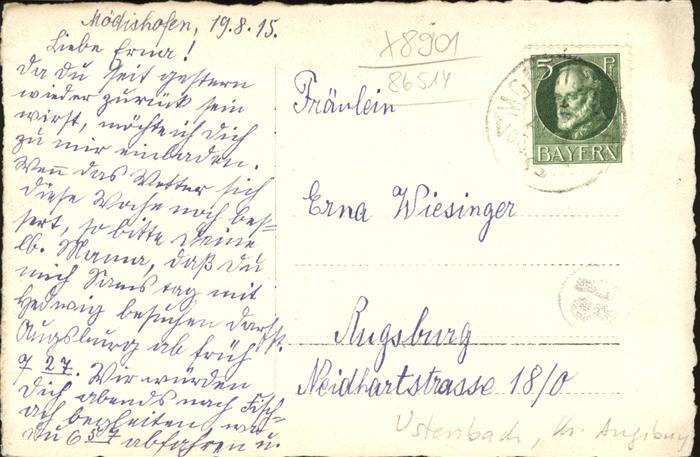 Mödishofen, 19.8.15.
Liebe Erna!
Da du seit gestern
wieder zurück sein
wirst, möchte ich dich
zu mir einladen.
Wenn das Wetter sich
diese Woche noch bes=
sert, so bitte Deine
lb. Mama, daß du
mich Samstag mit
Hedwig besuchen darfst.
Augsburg ab früh
7 27. Wir würden
dich abends nach Fisch=
ach begleiten, wo
du 6 57 abfahren u.
x8901
86514
5 Pf
BAYERN
Fräulein
Erna Wiesinger
Augsburg
Neidhartstrasse 18/0
Ustersbach, Kr. Augsburg